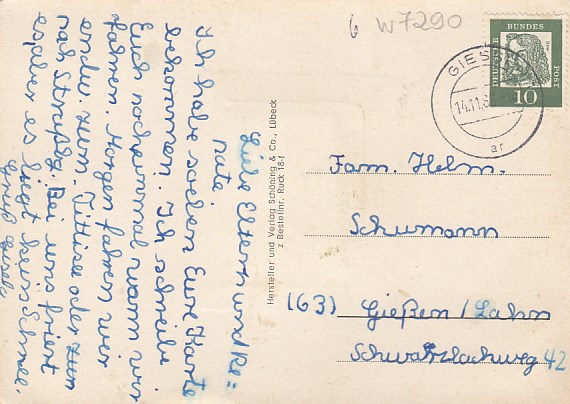 6 W7290
DEUTSCHE BUNDES POST
10
GIES
14.11.6
ar
Liebe Eltern und Re=
nate.
Ich habe soeben Eure Karte
bekommen. Ich schreibe
Euch noch einmal wann wir
fahren. Morgen fahren wir
endw. zum. Tittisee oder zum
nach Straßbg. Bei uns friert
es, aber es liegt kein Schnee.
Gruß
Hersteller und Verlag Schöning & Co., Lübeck
z Bestellnr. Ruck 18-f
Fam. Helm.
Schumann
(63) Gießen / Lahn
Schwarzlachweg 42